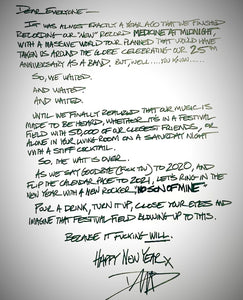 DEAR EVERYONE-
IT WAS ALMOST EXACTLY A YEAR AGO THAT WE FINISHED
RECORDING OUR NEW RECORD MEDICINE AT MIDNIGHT,
WITH A MASSIVE WORLD TOUR PLANNED THAT WOULD HAVE
TAKEN US AROUND THE GLOBE CELEBRATING OUR 25TH
ANNIVERSARY AS A BAND. BUT, WELL.....YOU KNOW.....
SO, WE WAITED.
AND WAITED.
AND WAITED.
UNTIL WE FINALLY REALIZED THAT OUR MUSIC IS
MADE TO BE HEARD, WHETHER IT'S IN A FESTIVAL
FIELD WITH 50,000 OF OUR CLOSEST FRIENDS, OR
ALONE IN YOUR LIVING ROOM ON A SATURDAY NIGHT
WITH A STIFF COCKTAIL.
SO, THE WAIT IS OVER.
AS WE SAY GOODBYE (FUCK YOU) TO 2020, AND
FLIP THE CALENDAR PAGE TO 2021, LET'S RING IN THE
NEW YEAR WITH A NEW ROCKER, "NO SON OF MINE"
POUR A DRINK, TURN IT UP, CLOSE YOUR EYES AND
IMAGINE THAT FESTIVAL FIELD BLOWING UP TO THIS.
BECAUSE IT FUCKING WILL.
HAPPY NEW YEAR X
DAVE